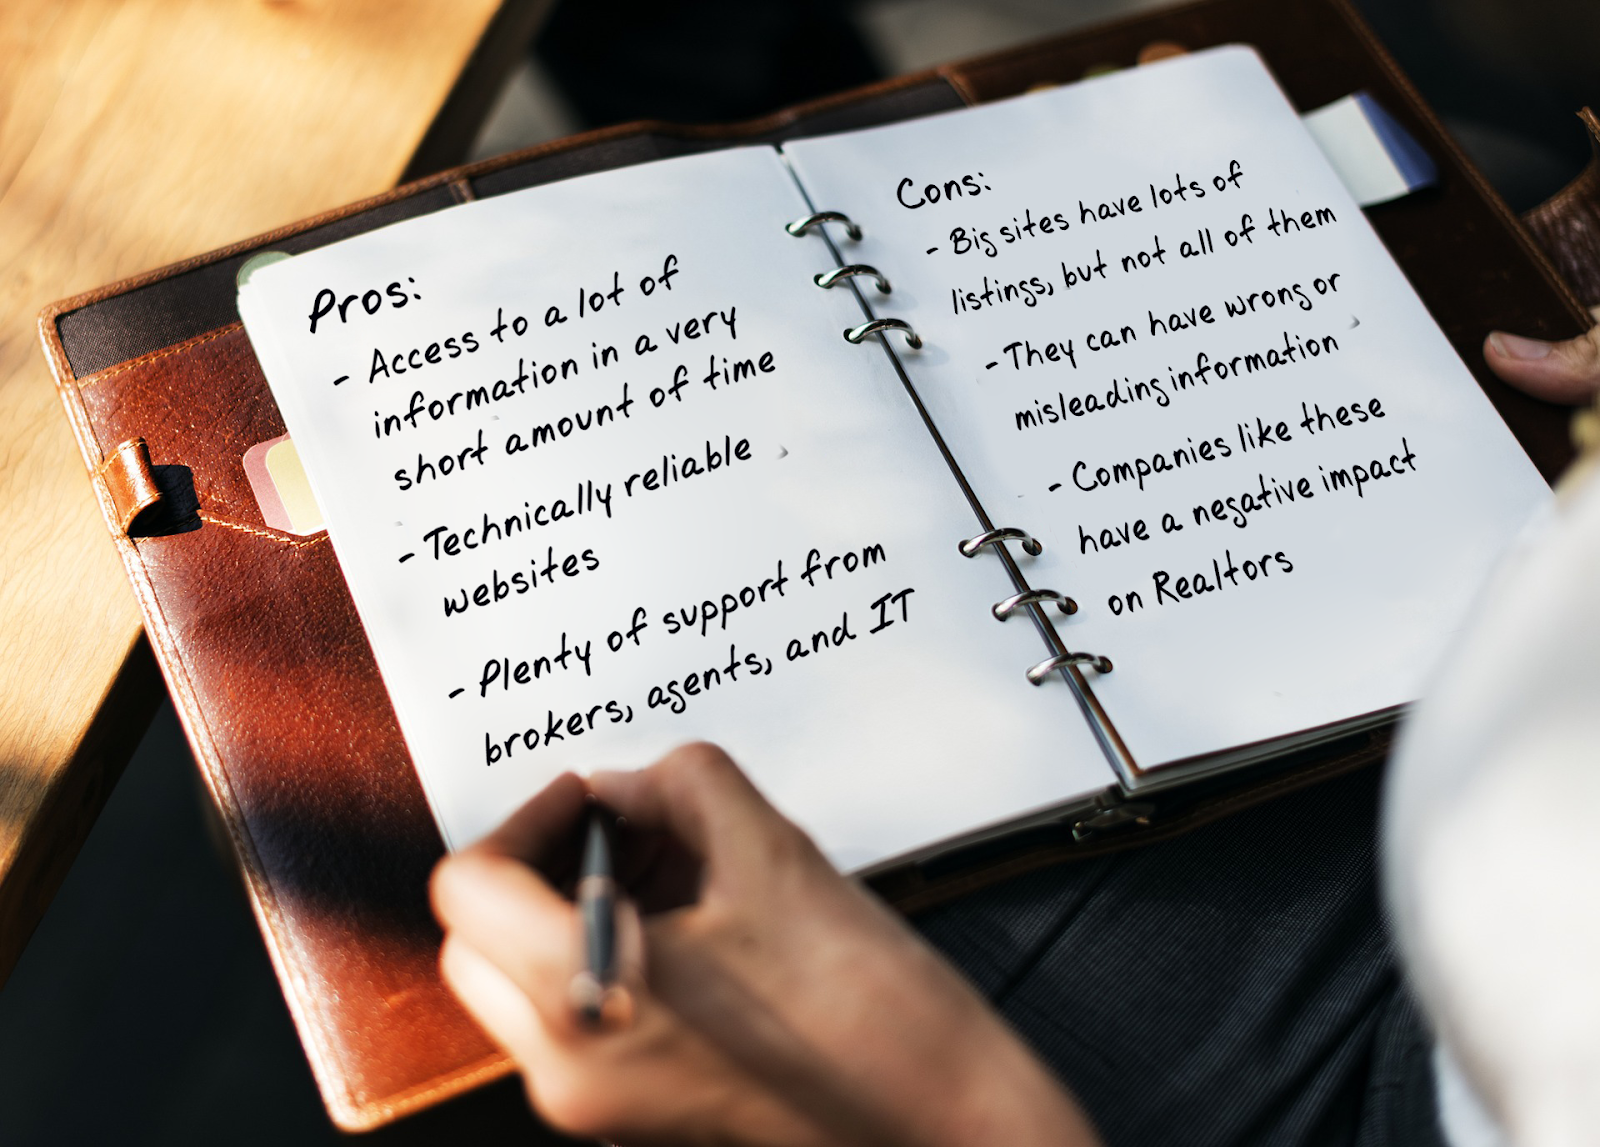 Pros:
- Access to a lot of
information in a very
short amount of time
- Technically reliable
websites
- Plenty of support from
brokers, agents, and IT
Cons:
- Big sites have lots of
listings, but not all of them
- They can have wrong or
misleading information
- Companies like these
have a negative impact
on Realtors